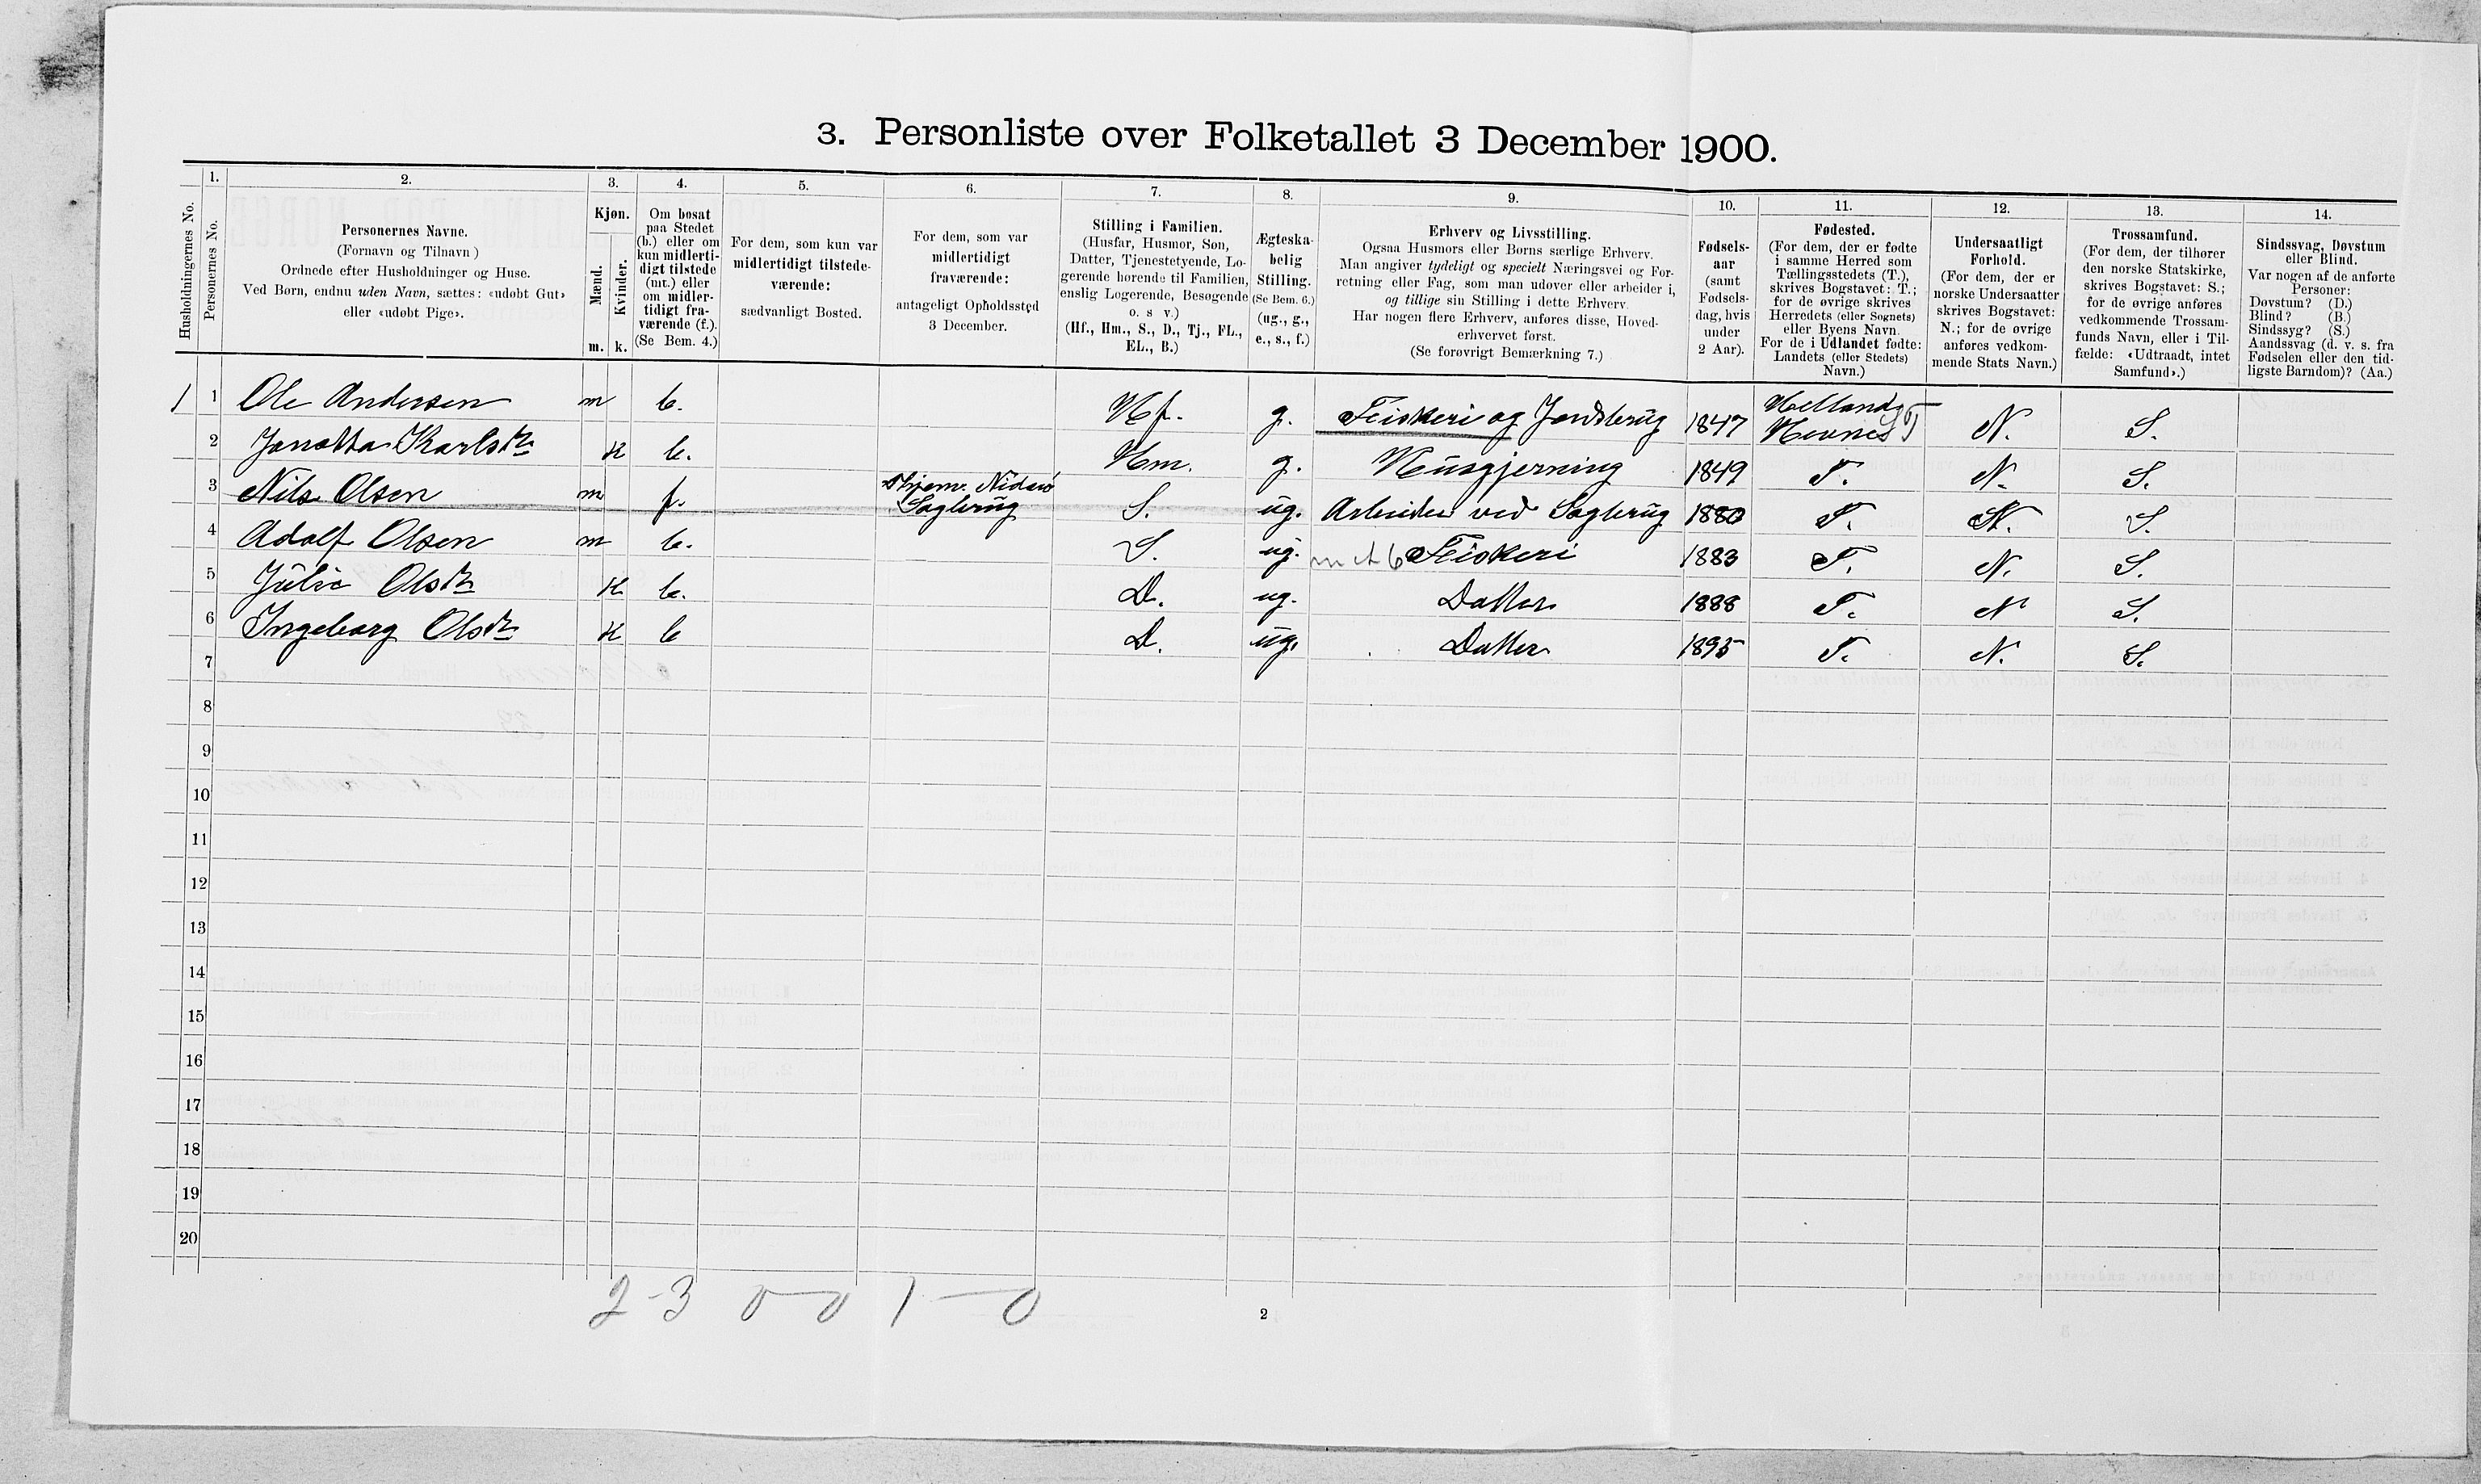 3. Personliste over Folketallet 3 December 1900.
1. 2. 3. 4. 5. 6. 7. 8. 9. 10. 11. 12. 13. 14.
Husholdningernes No.
Personernes No.
Personernes Navne.
(Fornavn og Tilnavn)
Ordnede efter Husholdninger og Huse.
Ved Børn, endnu uden Navn, sættes: «udøbt Gut»
eller «udøbt Pige».
Kjøn.
Mænd.
Kvinder.
m. k.
Om bosat
paa Stedet
(b.) eller om
kun midlerti-
digt tilstede
(mt.) eller
om midler-
tidigt fra-
værende (f.).
(Se Bem. 4.)
For dem, som kun var
midlertidigt tilstede-
værende:
sædvanligt Bosted.
For dem, som var
midlertidigt
fraværende:
antageligt Opholdssted
3 December.
Stilling i Familien.
(Husfar, Husmor, Søn,
Datter, Tjenestetyende, Lo-
gerende hørende til Familien,
enslig Logerende, Besøgende
o. s v.)
(Hf., Hm., S., D., Tj., FL.,
EL., B.)
Ægteska-
belig
Stilling.
(Se Bem. 6.)
(ug., g.,
e., s., f.)
Erhverv og Livsstilling.
Ogsaa Husmors eller Børns særlige Erhverv.
Man angiver tydeligt og specielt Næringsvei og For-
retning eller Fag, som man udøver eller arbeider i,
og tillige sin Stilling i dette Erhverv.
Har nogen flere Erhverv, anføres disse, Hoved-
erhvervet først.
(Se forøvrigt Bemærkning 7.)
Fødsels-
aar
(samt
Fødsels-
dag, hvis
under
2 Aar).
Fødested.
(For dem, der er fødte
i samme Herred som
Tællingsstedets (T.),
skrives Bogstavet: T.;
for de øvrige skrives
Herredets (eller Sognets)
eller Byens Navn.
For de i Udlandet fødte:
Landets (eller Stedets)
Navn.)
Undersaatligt
Forhold.
(For dem, der er
norske Undersaatter
skrives Bogstavet:
N.; for de øvrige
anføres vedkom-
mende Stats Navn.)
Trossamfund.
(For dem, der tilhører
den norske Statskirke,
skrives Bogstavet: S.;
for de øvrige anføres
vedkommende Trossam-
funds Navn, eller i Til-
fælde: «Udtraadt, intet
Samfund».)
Sindssvag, Døvstum
eller Blind.
Var nogen af de anførte
Personer:
Døvstum? (D.)
Blind? (B.)
Sindssyg? (S.)
Aandssvag (d. v. s. fra
Fødselen eller den tid-
ligste Barndom)? (Aa.)
1 1 Ole Andersen m b. Hf. g. Fiskeri og Jordbrug 1847 Hevnes N. S.
2 Jonetta Karlsdtr k b. Hm. g. Husgjerning 1849 T. N. S.
3 Nils Olsen m f. Sagbrug S. ug. Arbeider ved Sagbrug 1880 T. N. S.
4 Adolf Olsen m b. S. ug. Fiskeri 1883 T. N. S.
5 Julie Olsdtr k b. D. ug. Datter 1888 T. N S.
6 Ingeborg Olsdtr k b D. ug. Datter 1895 T. N. S.
7
8
9
10
11
12
13
14
15
16
17
18
19
20
2-3 0-0 1-0
2